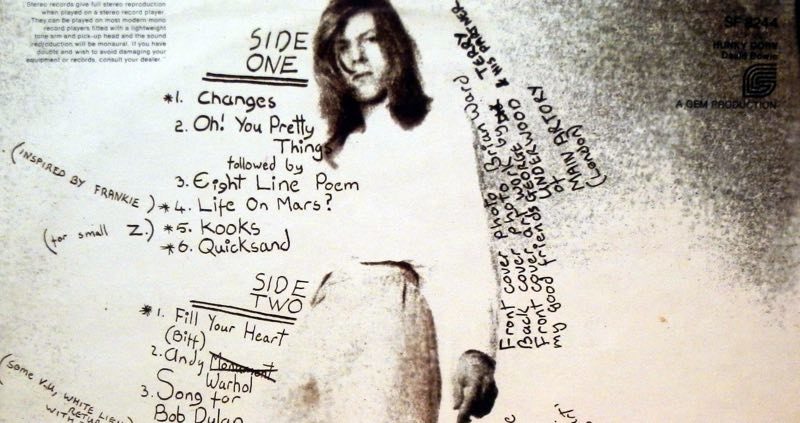 Stereo records give full stereo reproduction
when played on a stereo record player.
They can be played on most modern mono
record players fitted with a lightweight
tone arm and pick-up head and the sound
reproduction will be monaural. If you have
doubts and wish to avoid damaging your
equipment or records, consult your dealer.
SIDE
ONE
*1. Changes
2. Oh! You Pretty
Things
followed by
3. Eight Line Poem
(INSPIRED BY FRANKIE) *4. Life On Mars?
(for small Z.) *5. Kooks
*6. Quicksand
SIDE
TWO
*1. Fill Your Heart
(Biff)
2. Andy Monument
Warhol
3. Song for
Bob Dylan
(Some V.U. WHITE LIGHT
RETURNED
WITH
Front cover photo Brian Ward
Back cover photo by
Front cover artwork by TERRY
& HIS PARTNER
my good friends GEORGE UNDERWOOD
of
MAIN ARTORY
(London)
SF 8244
HUNKY DORY
David Bowie
A GEM PRODUCTION